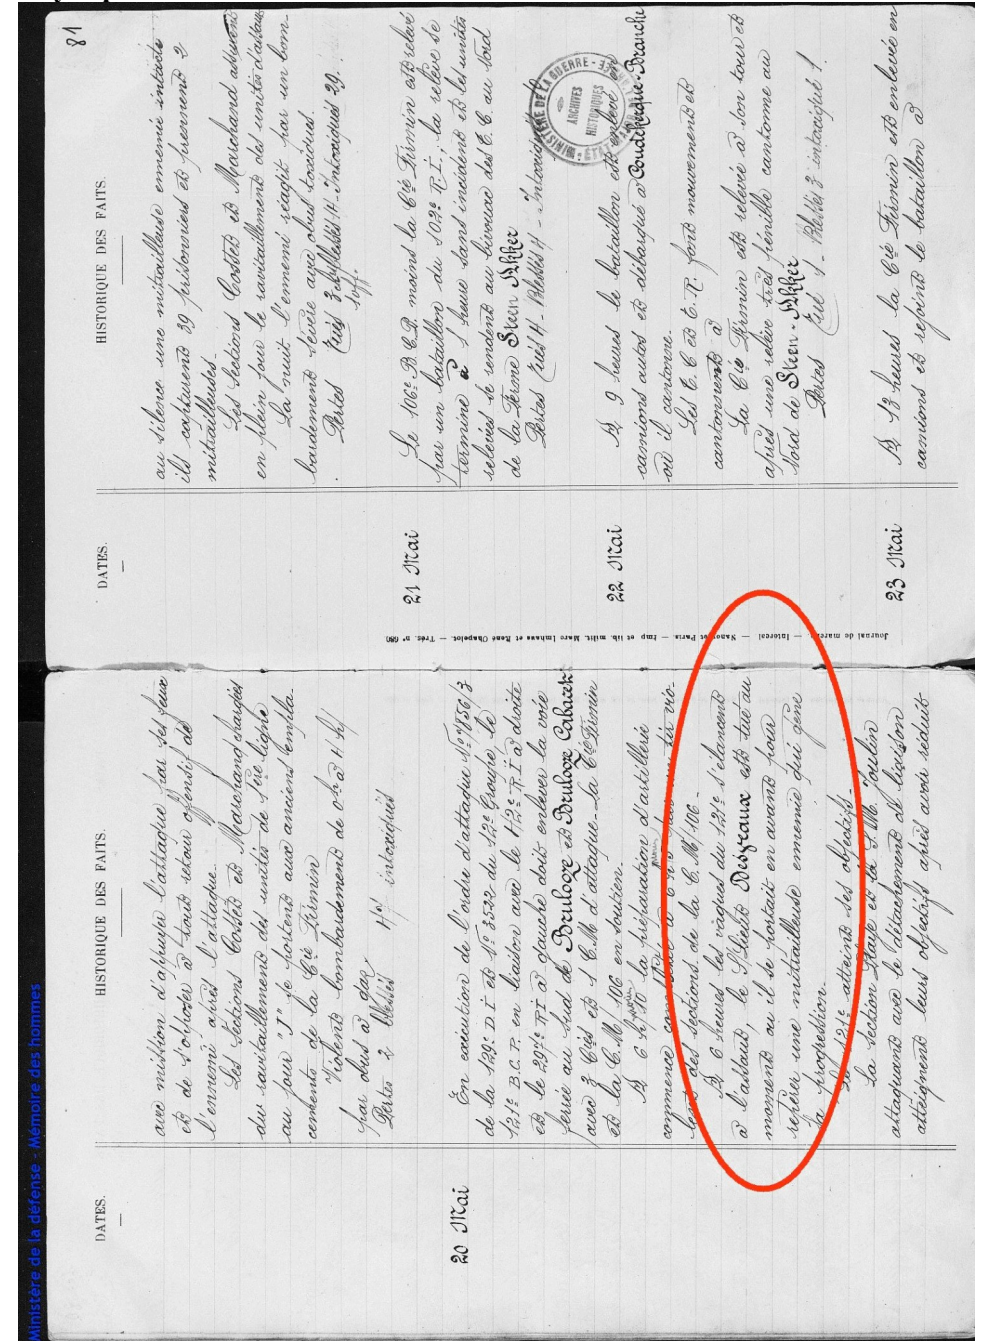 Ministère de la défense - Mémoire des hommes
DATES.
HISTORIQUE DES FAITS.
avec mission d'appuyer l'attaque par ses feux
et de s'opposer à tout retour offensif de
l'ennemi après l'attaque.
Les sections Costet et Marchand chargées
du ravitaillement des unités de 1ère ligne
au jour "J" se portent aux anciens empla-
cements de la Cie Firmin
Violent bombardement de 0h à 4h
par obus à gaz
Pertes 2 blessés intoxiqués
20 Mai
En exécution de l'ordre d'attaque
de la 129e D.I et No 3522 du 12e Groupe, le
121e B.C.P. en liaison avec le 412e R.I à droite
et le 297e R.I à gauche doit enlever la voie
ferrée au sud de Brulooze et Brulooze Cabaret
avec 3 Cies et 1 C.M d'attaque - la Cie Firmin
et la C.M/106 en soutien.
A la préparation d'artillerie
commence
lent des sections de la C.M/106 -
A 6 heures les vagues du 121e s'élancent
à l'assaut le S/Lieut Desgraux est tué au
moment où il se portait en avant pour
repérer une mitrailleuse ennemie qui gêne
la progression.
Le 121e atteint ses objectifs -
La section et la S.M. Toulin
attaquant avec le détachement de liaison
atteignent leurs objectifs après avoir réduit
81
DATES.
HISTORIQUE DES FAITS.
au silence une mitrailleuse ennemie intacte
ils capturent 39 prisonniers et prennent 2
mitrailleuses -
Les sections Costet et Marchand assurent
en plein jour le ravitaillement des unités d'assaut
La nuit l'ennemi réagit par un bom-
bardement sévère avec obus toxiques.
Pertes Tués 3 Blessés 11 - Intoxiqués 29.
21 Mai
Le 106e B.C.P. moins la Cie Firmin est relevé
par un bataillon du 102e R.I, la relève se
termine à 1 heure sans incident et les unités
relevées se rendent au bivouac des T.C. au Nord
de la Ferme Steen Akker
Pertes Tués 4 - Blessés 4 - Intoxiqués
MINISTÈRE DE LA GUERRE
ARCHIVES
HISTORIQUES
22 Mai
A 9 heures le bataillon est enlevé
camions autos et débarqué à Coudekerque-Branche
où il cantonne.
Les T.C et T.R. font mouvement et
cantonnent à
La Cie Firmin est relevée à son tour et
après une relève très pénible cantonne au
Nord de Steen - Akker
Pertes Tué 1 - Blessés 3 intoxiqué 1.
23 Mai
A 13 heures la Cie Firmin est enlevée en
camions et rejoint le bataillon à